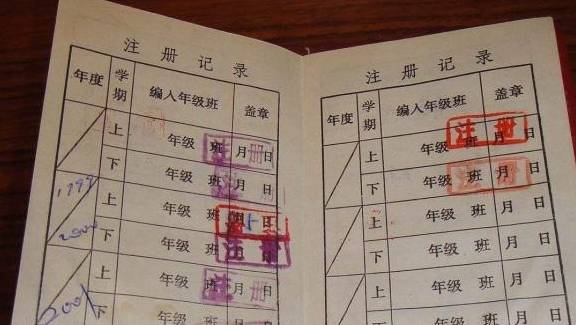 注册记录
年度 学期 编入年级班 盖章
上 年级 班 月 日
注册
下 年级 班 月 日
注册
1999
上 年级 班 月 日
2000
下 年级 班 月 日
注册
上 年级 班 月 日
注册
2001
下 年级 班 月 日
注册记录
年度 学期 编入年级班 盖章
上 年级 班 月 日
注册
下 年级 班 月 日
注册
上 年级 班 月 日
下 年级 班 月 日
上 年级 班 月 日
下 年级 班 月 日